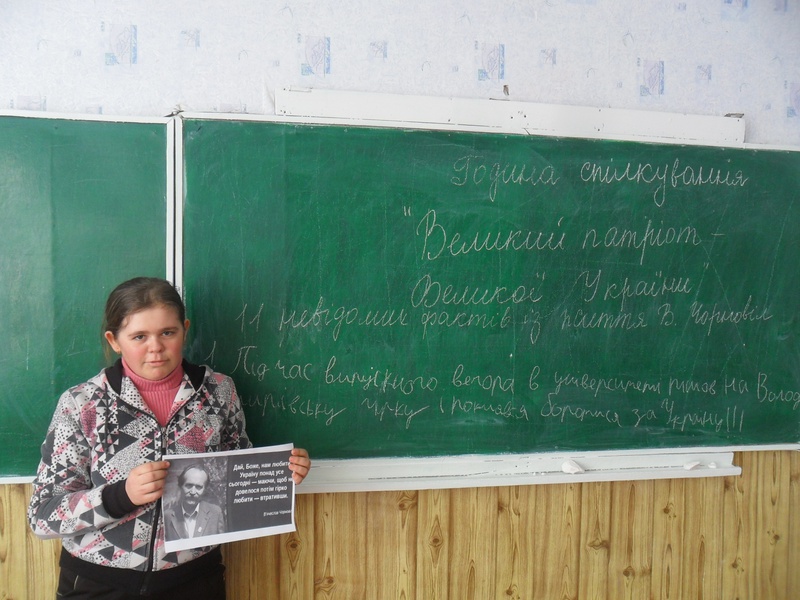 Година спілкування
"Великий патріот -
Великої України"
11 невідомих фактів із життя В. Чорновіл
1 Під час випускного вечора в університеті пішов на Волод
имирівську гірку і поклявся боротися за Україну!!!
Дай, Боже, нам любити
Україну понад усе
сьогодні — маючи, щоб не
довелося потім гірко
любити — втративши.